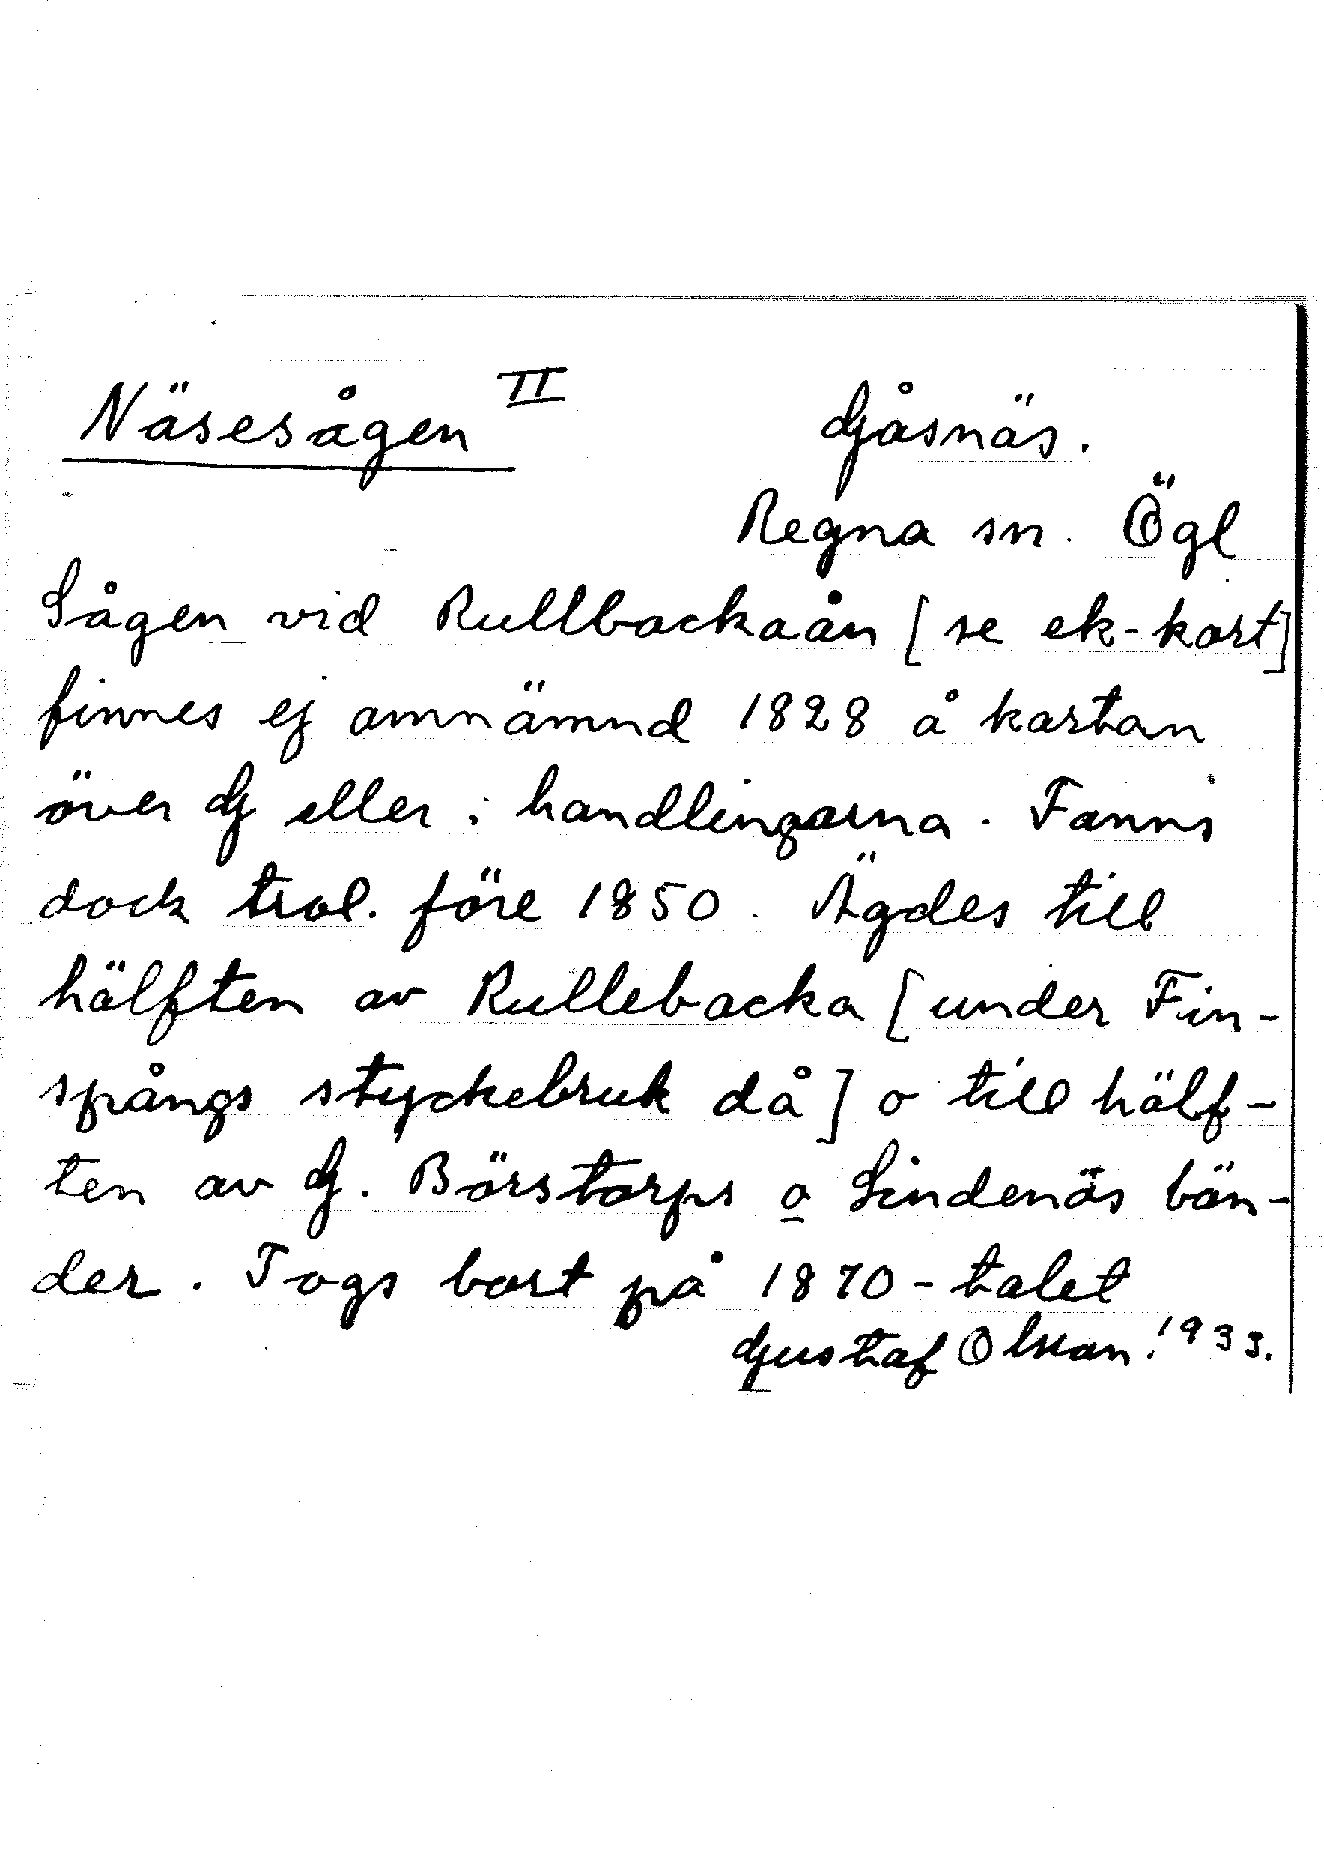 Näsesågen II
Gåsnäs.
Regna sn. Ögl
Sågen vid Rullbackaån [se ek-kart]
finnes ej omnämnd 1828 å kartan
över G eller i handlingarna. Fanns
dock trol. före 1850. Ägdes till
hälften av Rullebacka [under Fin-
spångs styckebruk då] o till hälf-
ten av G. Börstorps o Lindenäs bön-
der. Togs bort på 1870-talet
Gustaf Olsson. 1933.